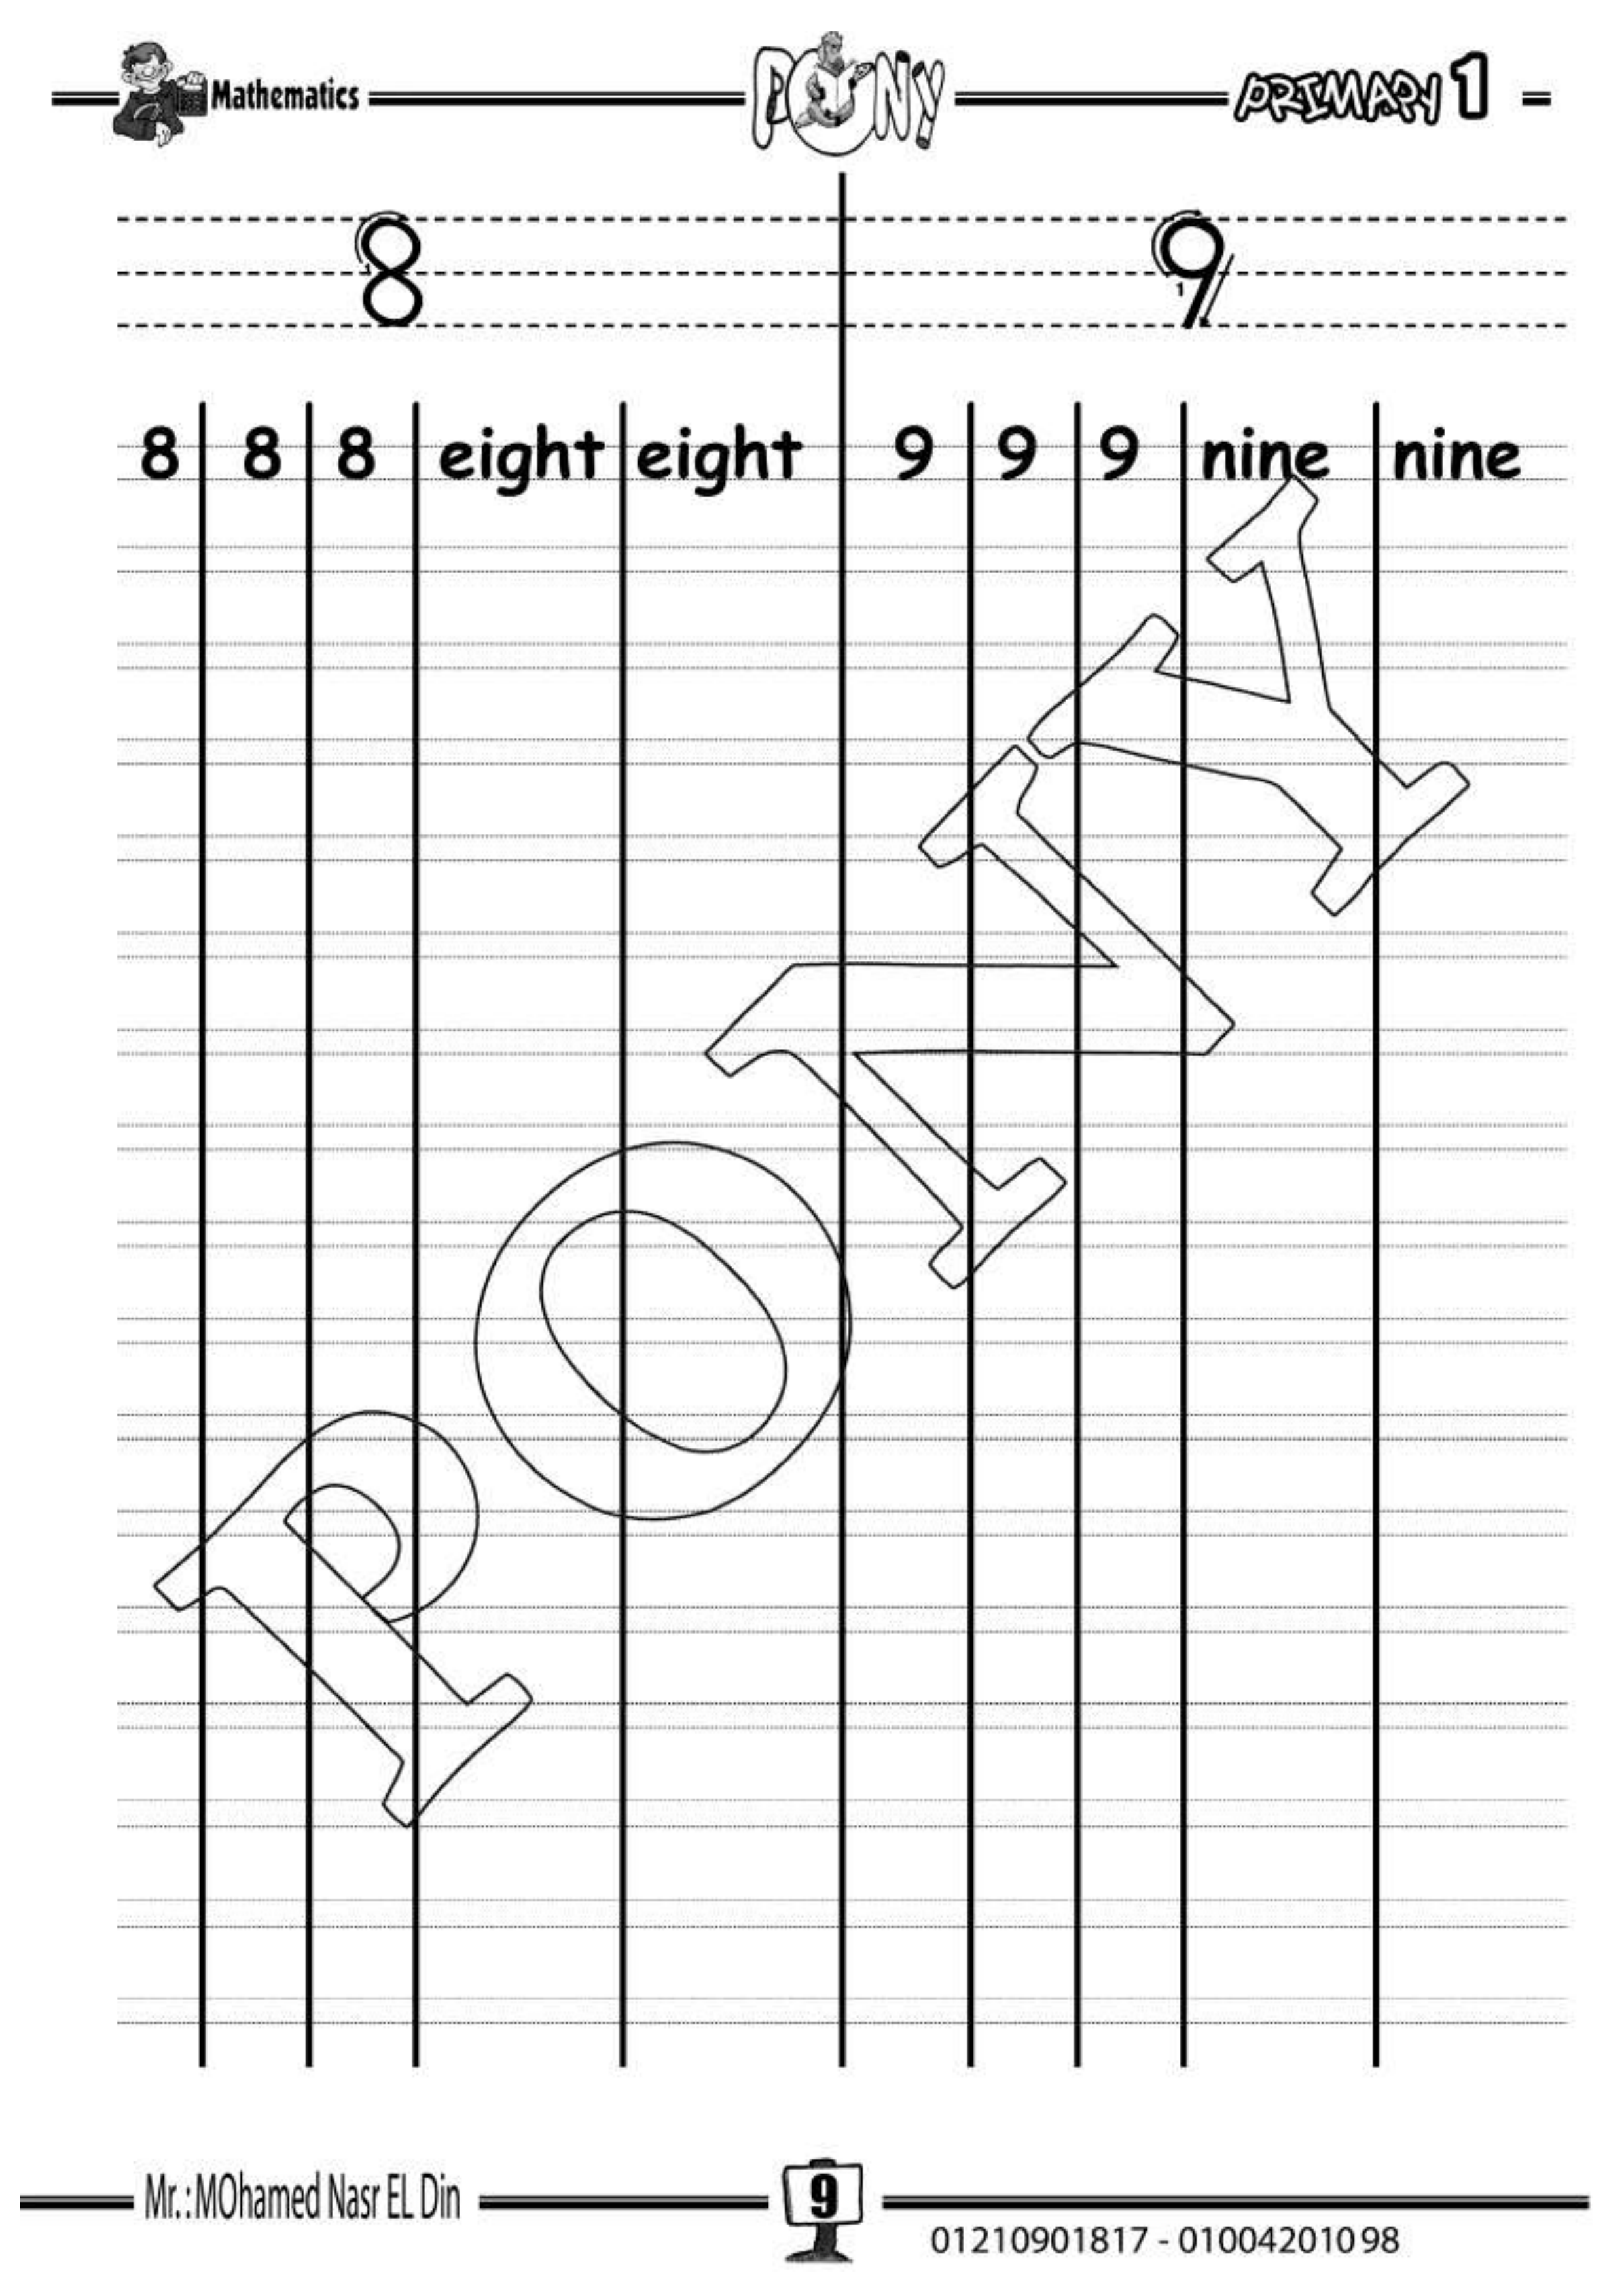 Mathematics PONY PRIMARY 1
8 9
1 1
8 8 8 eight eight 9 9 9 nine nine
PONY
Mr.:MOhamed Nasr EL Din 9
01210901817 - 01004201098